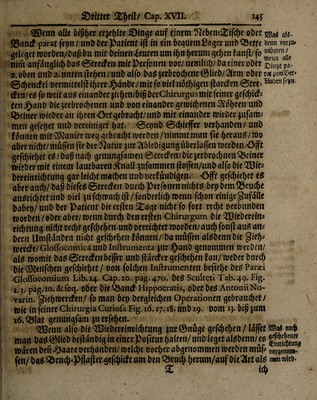 Dritter Theil/ Cap. XVII. 145
Wenn alle bißher erzehlte Dinge auf einem Neben-Tische oder
Banck parat seyn/ und der Patient ist in ein bequem Lager und Bette
geleget worden/ daß du mit deinen Leuten um ihn herum gehen kanst/ so
nim anfänglich das Strecken mit Personen vor/ nemlich/ da einer oder
2. oben und 2. unten stehen/ und also das zerbrochene Glied/ Arm oder
Schenckel vermittelst ihrer Hände/ mit so viel nöthigen starcken Stre-
cken/ es so weit aus einander ziehen/ der Chirurgus mit seiner geschick-
ten Hand die zerbrochenen und von einander gewichenen Röhren und
Beiner wieder an ihren Ort gebracht/ und mit einander wieder zusam-
men gesetzet und vereiniget hat. Seynd Schieffer verhanden/ und
könten mit Manier weg gebracht werden/ nimmt man sie heraus/ wo
aber nicht/ müssen sie der Natur zur Ableidigung überlassen werden. Offt
geschiehet es/ daß nach genungsamen Strecken die zerbrochnen Beiner
wieder mit einem lautbaren Knall zusammen stossen/ und also die Wie-
dereinrichtung gar leicht machen und verkündigen. Offt geschiehet es
aber auch/ daß dieses Strecken durch Personen nichts bey dem Bruche
ausrichtet und viel zu schwach ist/ sonderlich wenn schon einige Zufälle
dabey/ und der Patient die ersten Tage nicht so fort recht verbunden
worden/ oder aber/ wenn durch den ersten Chirurgum die Wiederein-
richtung nicht recht geschehen und verrichtet worden/ auch sonst aus an-
dern Umständen nicht geschehen können/ da müssen alsdenn die Zieh-
wercke/ Glossocomica und Instrumenta zur Hand genommen werden/
als womit das Strecken besser und stärcker geschehen kan/ weder durch
die Menschen geschiehet/ von solchen Instrumenten besiehe des Paræi
Glossocomium Lib. 14. Cap. 10. pag. 470. des Sculteti Tab. 49. Fig.
1. 3. pag. 10. & seq. oder die Banck Hippocratis, oder des Antonii No-
varin. Ziehwercken/ so man bey dergleichen Operationen gebrauchet/
wie in seiner Chirurgia Curiosa Fig. 16. 17. 18. und 19. vom 13. biß zum
16. Blat genungsam zu ersehen.
Wenn also die Wiedereinrichtung zur Gnüge geschehen/ lässet
man das Glied beständig in einer Positur halten/ und leget alsdenn/ es
wären denn Haare verhanden/ welche vorher abgenommen werden müs-
sen/ das Bruch-Pflaster geschickt um den Bruch herum/ auf die Art als
T ich
Was als-
denn vorzu-
nehmen/
wenn alle
Dinge pa-
rat zum Ver-
binden seyn.
Was nach
geschehener
Einrichtung
vorgenom-
men wird.